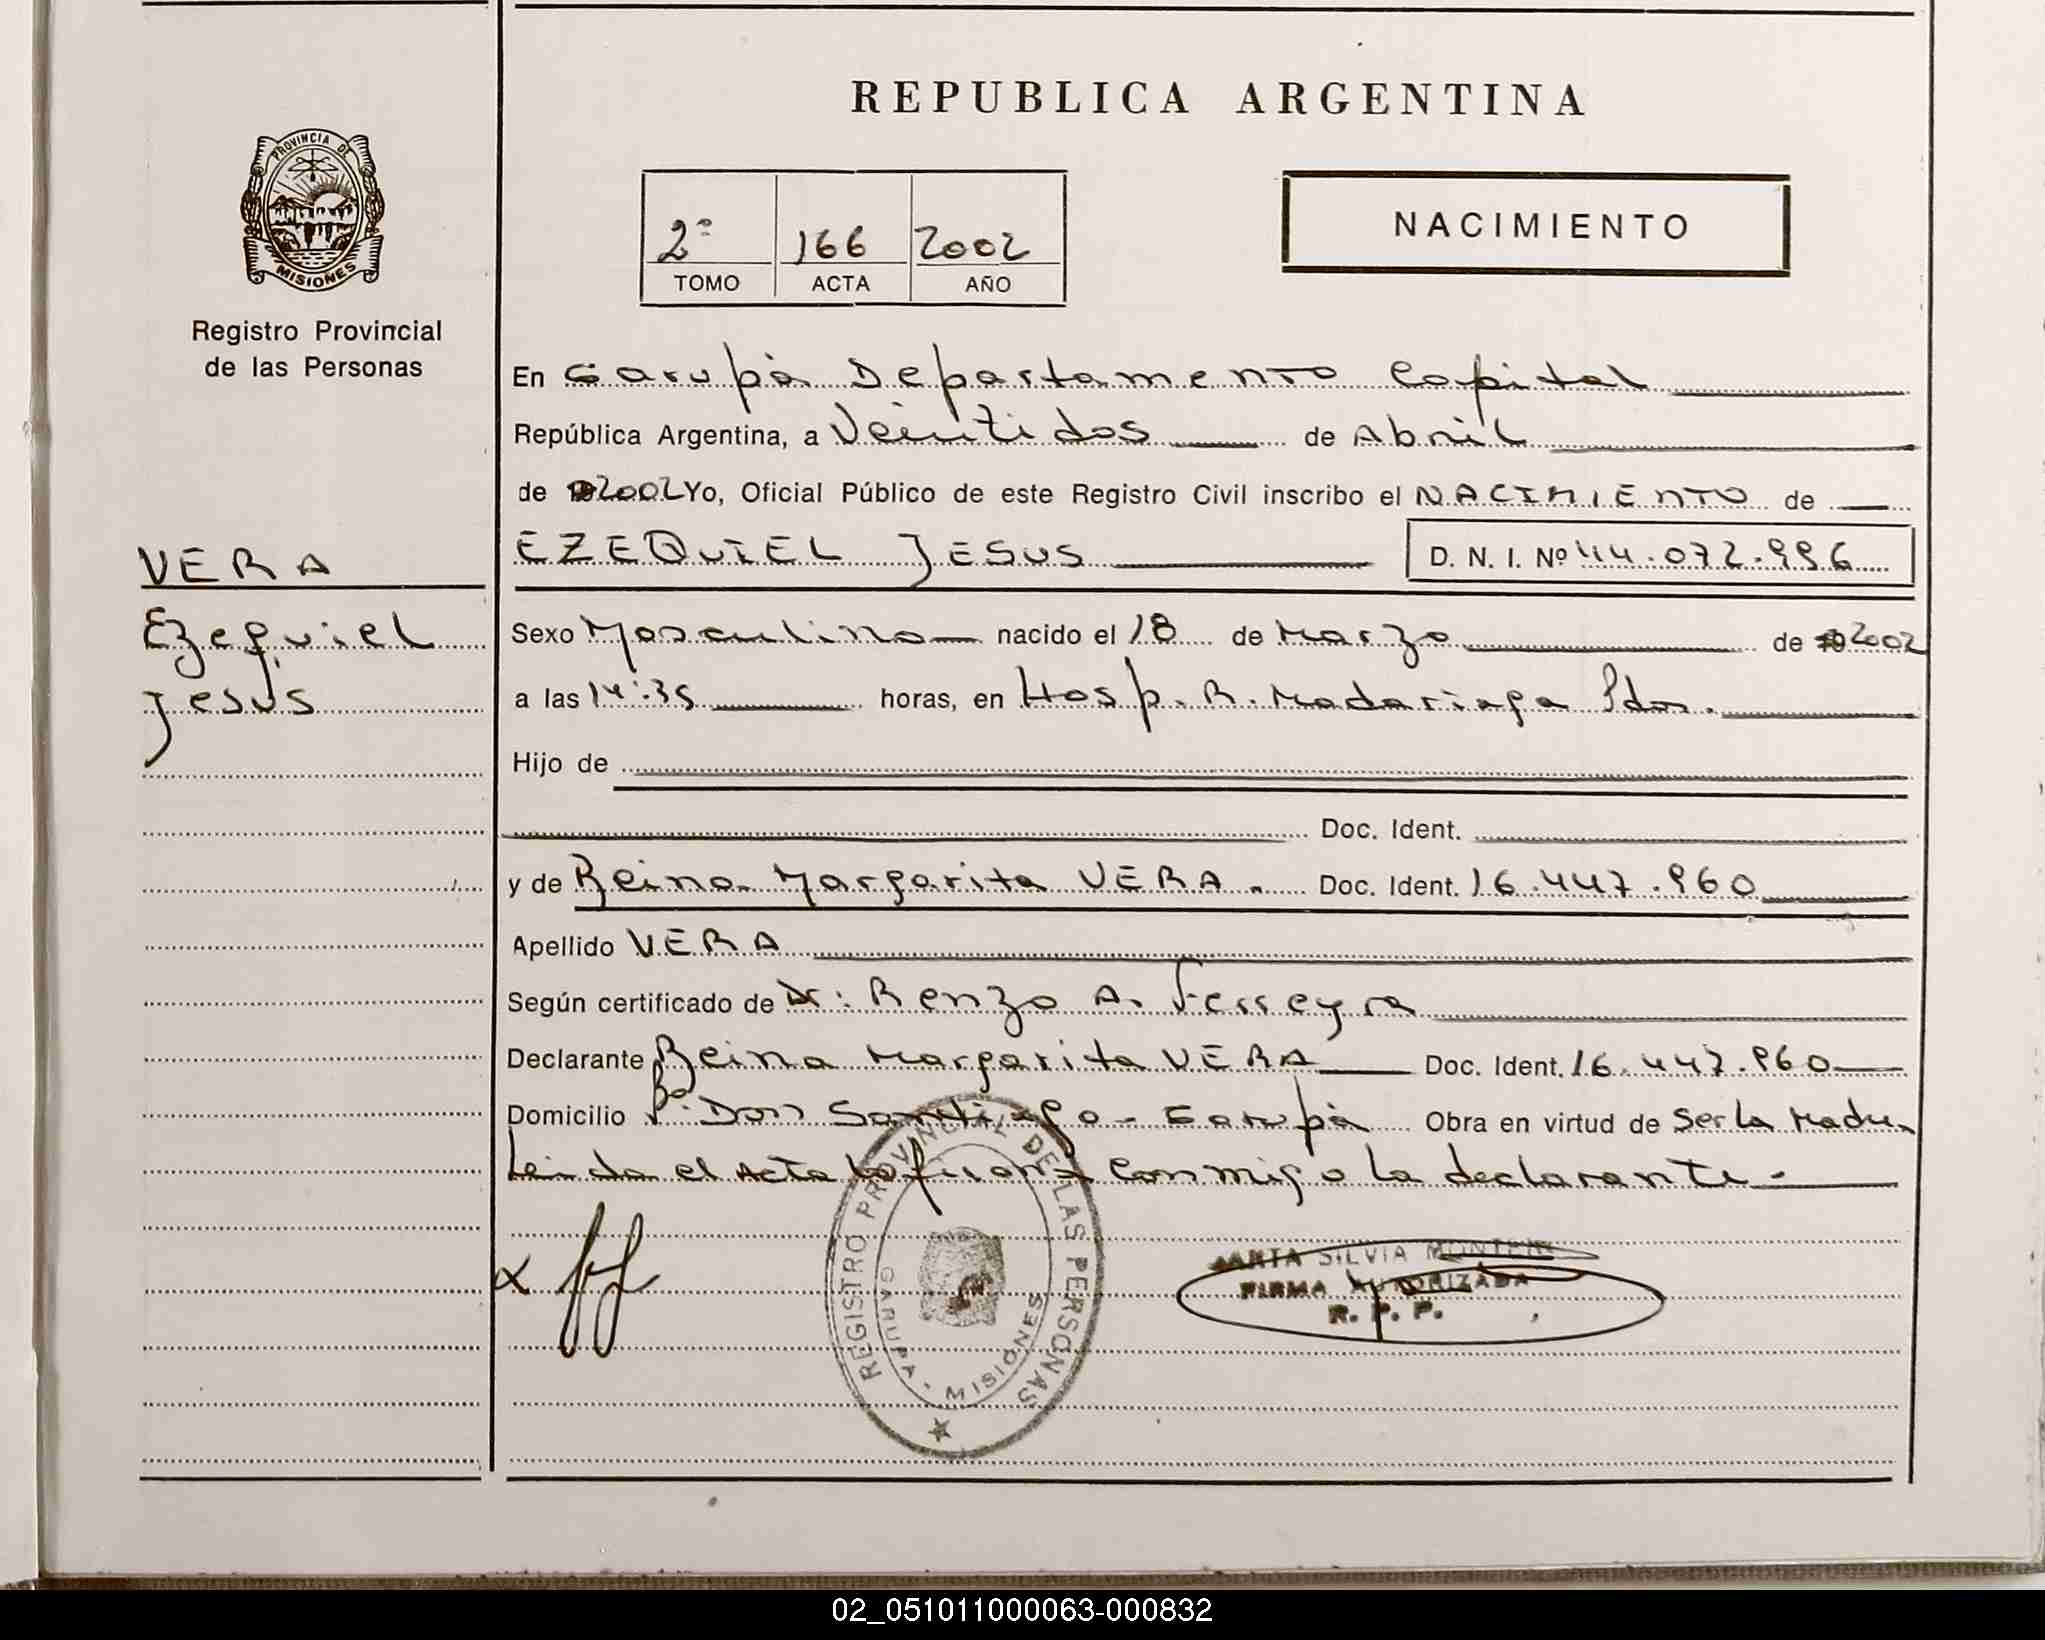 REPUBLICA ARGENTINA
PROVINCIA DE MISIONES
Registro Provincial
de las Personas
2º 166 2002
TOMO ACTA AÑO
NACIMIENTO
En Garupá Departamento Capital
República Argentina, a Veintidos de Abril
de 2002 Yo, Oficial Público de este Registro Civil inscribo el NACIMIENTO de
VERA
EZEQUIEL JESUS D. N. I. Nº 44.072.996
Ezequiel
Jesus
Sexo Masculino nacido el 18 de Marzo de 2002
a las 14:35 horas, en Hosp. R. Madariaga Pdas.
Hijo de
Doc. Ident.
y de Reina Margarita VERA. Doc. Ident. 16.447.960
Apellido VERA
Según certificado de Dr: Renzo A. Ferreyra
Declarante Reina Margarita VERA Doc. Ident. 16.447.960
Domicilio Bº. Don Santiago - Garupá Obra en virtud de Ser la Madre
Leida el Acta la firma conmigo la declarante.-
REGISTRO PROVINCIAL DE LAS PERSONAS
GARUPA - MISIONES
SILVIA
FIRMA AUTORIZADA
R. P. P.
02_051011000063-000832